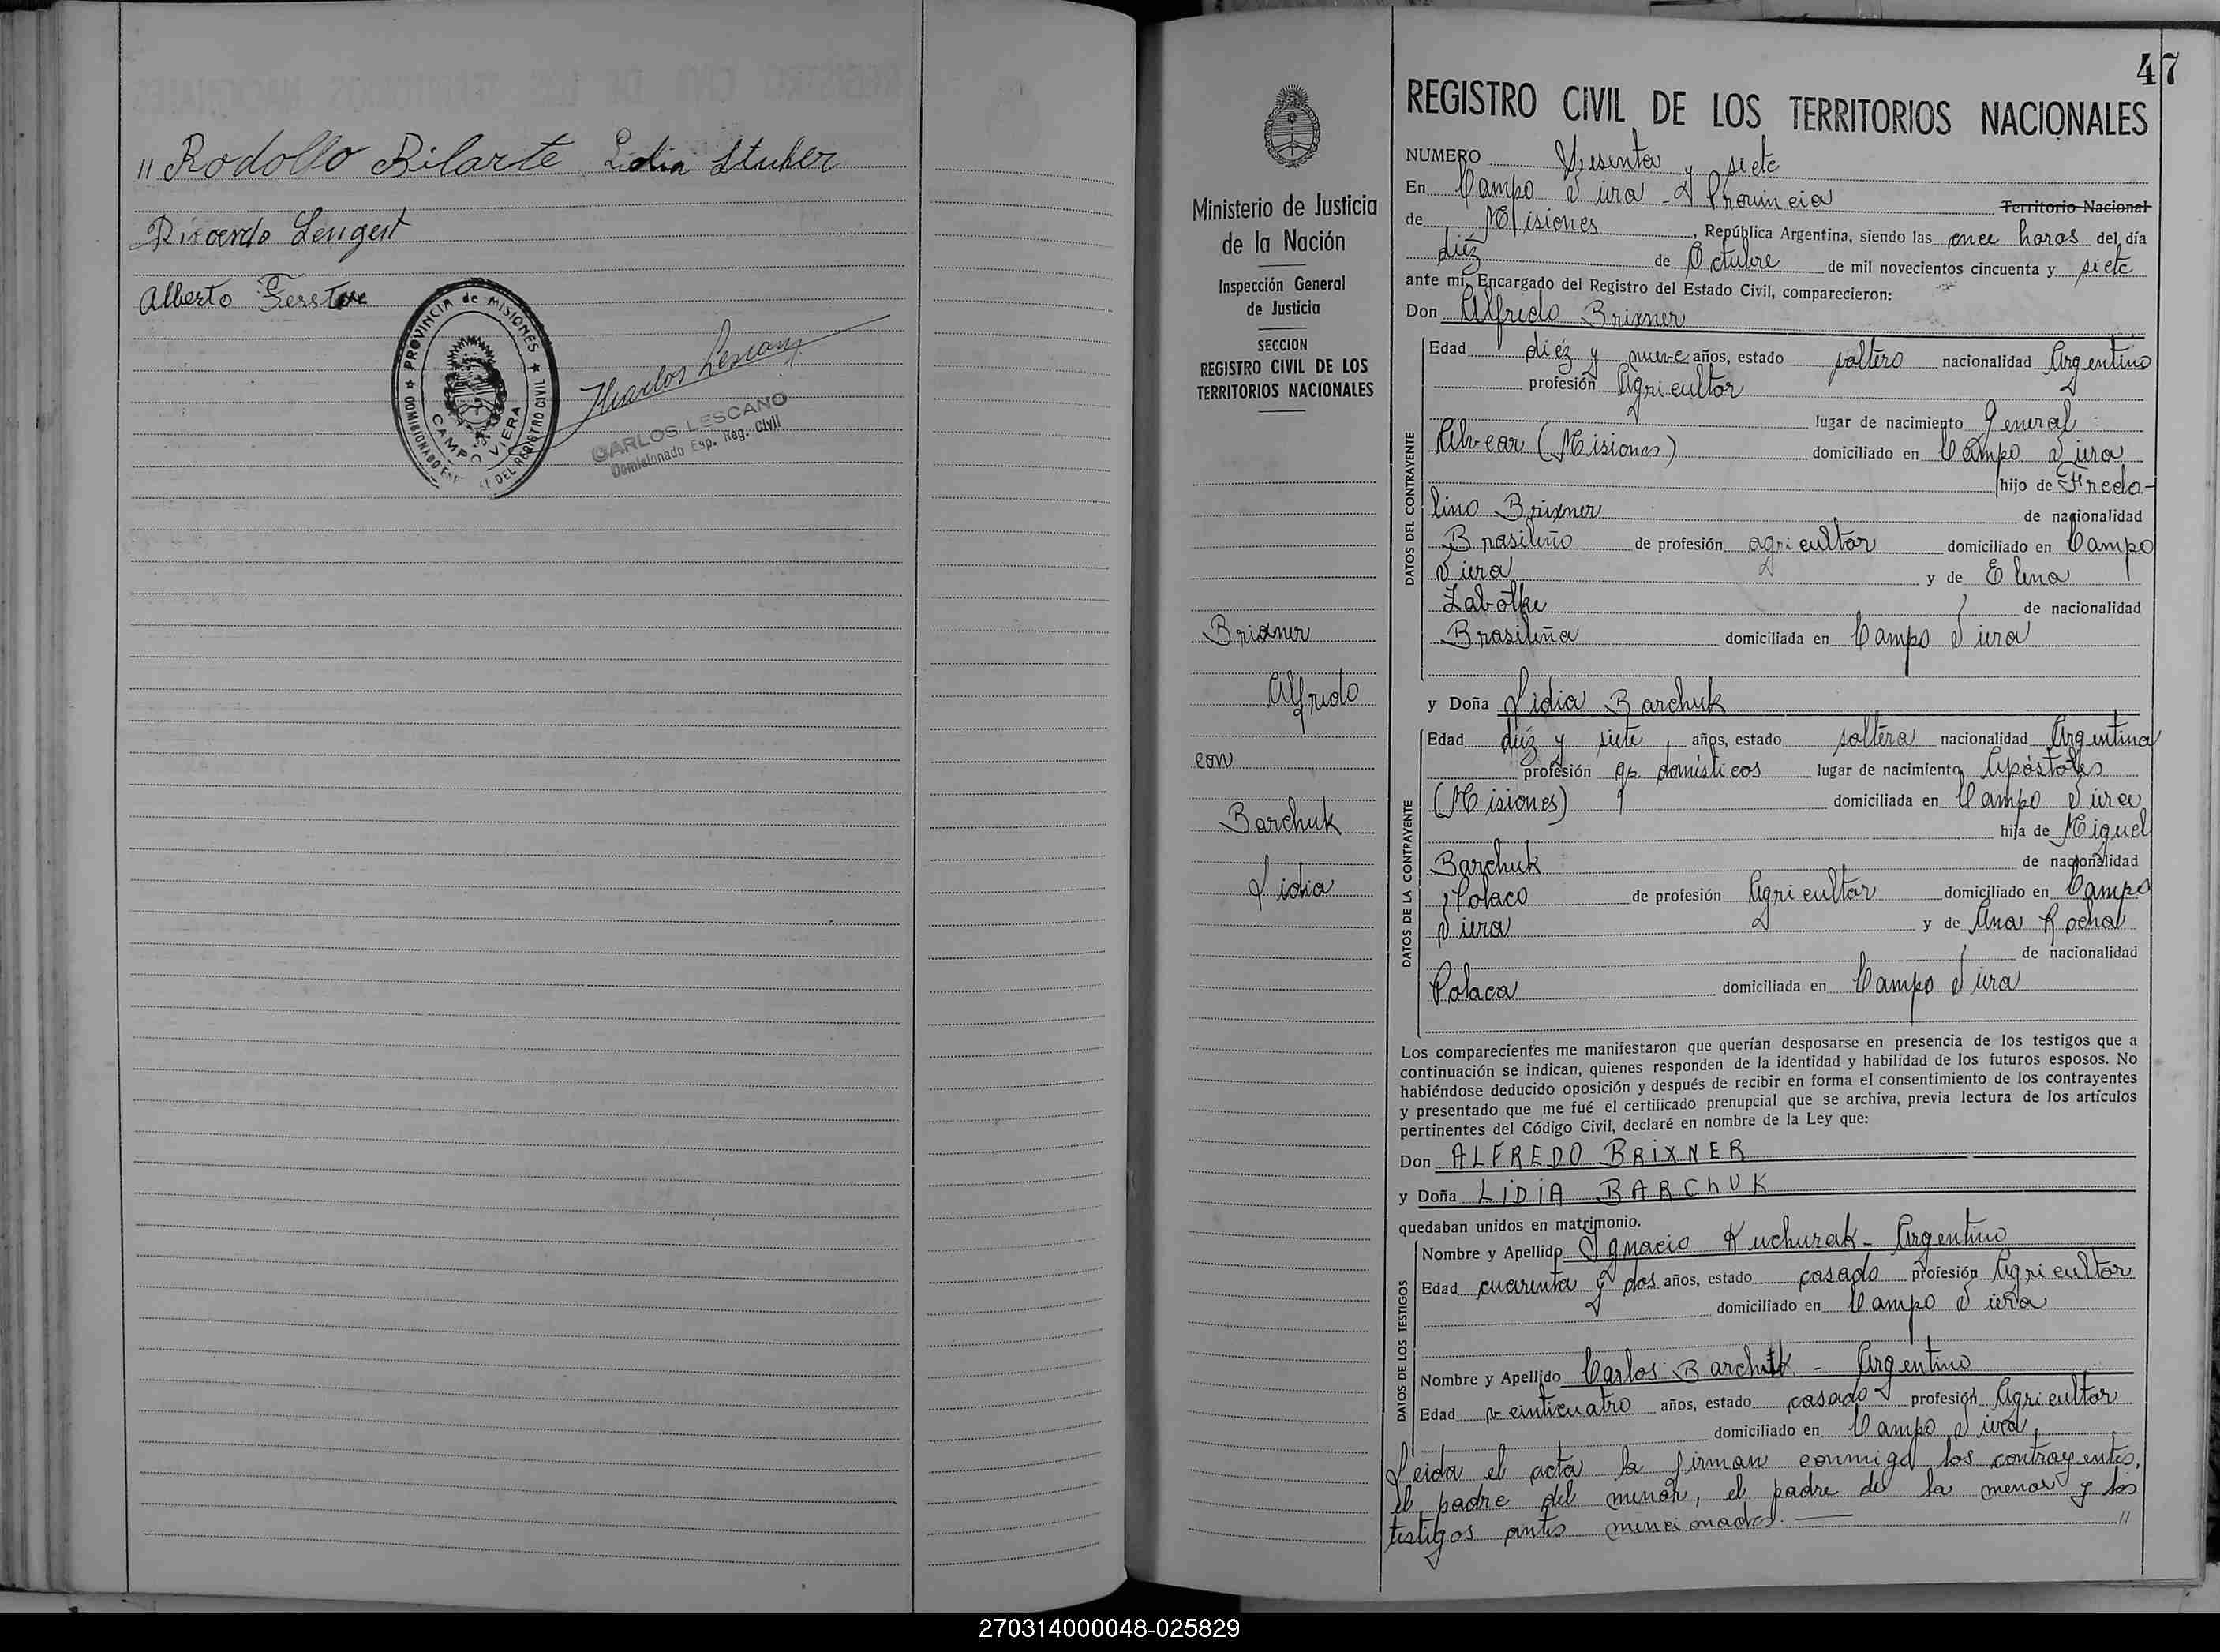 " Rodolfo Bilarte Lidia Stuber
Ricardo Lengert
Alberto Gerster
PROVINCIA de MISIONES
COMISIONADO DEL REGISTRO CIVIL
CAMPO VIERA
Hcarlos Lescano
CARLOS LESCANO
Comisionado Esp. Reg. Civil
47
Ministerio de Justicia
de la Nación
Inspección General
de Justicia
SECCION
REGISTRO CIVIL DE LOS
TERRITORIOS NACIONALES
Brixner
Alfredo
con
Barchuk
Lidia
REGISTRO CIVIL DE LOS TERRITORIOS NACIONALES
NUMERO y siete
En Campo Viera - Provincia Territorio Nacional
de Misiones, República Argentina, siendo las once horas del día
diéz de Octubre de mil novecientos cincuenta y siete
ante mí, Encargado del Registro del Estado Civil, comparecieron:
Don Alfredo Brixner
DATOS DEL CONTRAYENTE
Edad diéz y nueve años, estado soltero nacionalidad Argentino
profesión Agricultor
lugar de nacimiento General
Alvear (Misiones) domiciliado en Campo Viera
hijo de Fredo-
lino Brixner de nacionalidad
Brasileño de profesión agricultor domiciliado en Campo
Viera y de Elena
Zabotke de nacionalidad
Brasileña domiciliada en Campo Viera
y Doña Lidia Barchuk
DATOS DE LA CONTRAYENTE
Edad diéz y siete años, estado soltera nacionalidad Argentina
profesión qs. domésticos lugar de nacimiento Apóstoles
(Misiones) domiciliada en Campo Viera
hija de Miguel
Barchuk de nacionalidad
Polaco de profesión Agricultor domiciliado en Campo
Viera y de Ana Rocha
de nacionalidad
Polaca domiciliada en Campo Viera
Los comparecientes me manifestaron que querían desposarse en presencia de los testigos que a
continuación se indican, quienes responden de la identidad y habilidad de los futuros esposos. No
habiéndose deducido oposición y después de recibir en forma el consentimiento de los contrayentes
y presentado que me fué el certificado prenupcial que se archiva, previa lectura de los artículos
pertinentes del Código Civil, declaré en nombre de la Ley que:
Don ALFREDO BRIXNER
y Doña LIDIA BARCHUK
quedaban unidos en matrimonio.
DATOS DE LOS TESTIGOS
Nombre y Apellido Ignacio Kuchurak - Argentino
Edad cuarenta y dos años, estado casado profesión Agricultor
domiciliado en Campo Viera
Nombre y Apellido Carlos Barchuk - Argentino
Edad veinticuatro años, estado casado profesión Agricultor
domiciliado en Campo Viera,
Leida el acta la firman conmigo los contrayentes,
el padre del menor, el padre de la menor y los
testigos antes mencionados. "
270314000048-025829